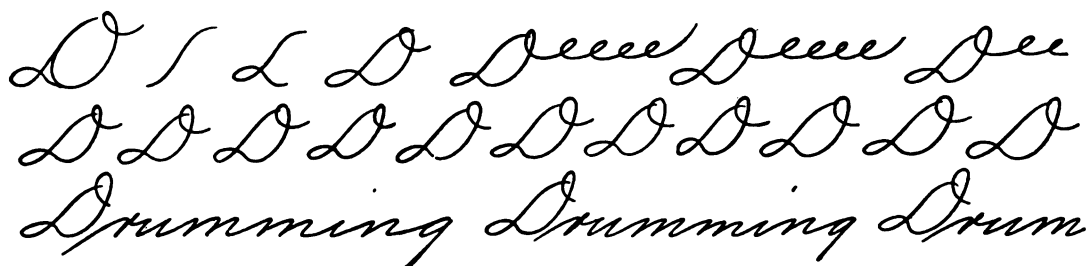 D D Deeee Deeee Dee
D D D D D D D D D D D
Drumming Drumming Drum